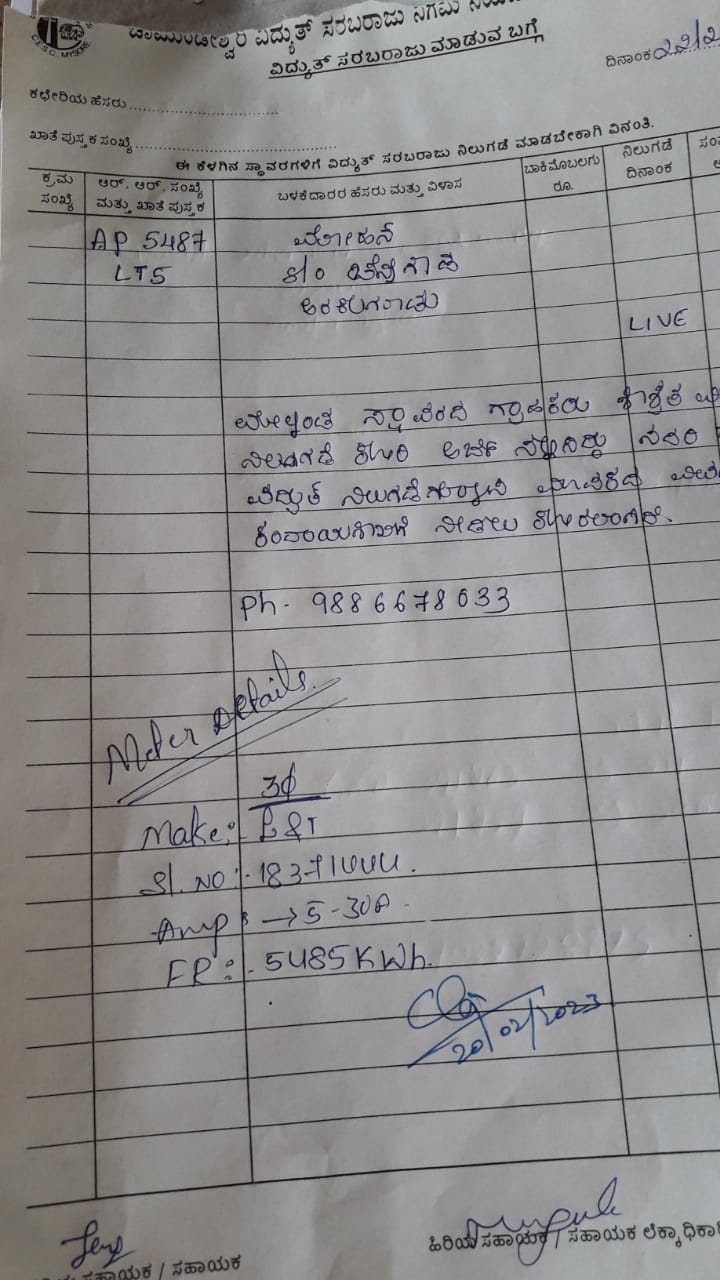 C.E.S.C. MYSORE
ವಿದ್ಯುತ್ ಸರಬರಾಜು ನಿಗಮ
ವಿದ್ಯುತ್ ಸರಬರಾಜು ಮಾಡುವ ಬಗ್ಗೆ
ದಿನಾಂಕ 22/2
ಕಛೇರಿಯ ಹೆಸರು
ಖಾತೆ ಪುಸ್ತಕ ಸಂಖ್ಯೆ
ಈ ಕೆಳಗಿನ ಸ್ಥಾವರಗಳಿಗೆ ವಿದ್ಯುತ್ ಸರಬರಾಜು ನಿಲುಗಡೆ ಮಾಡಬೇಕಾಗಿ ವಿನಂತಿ.
ಕ್ರಮ ಸಂಖ್ಯೆ
ಆರ್. ಆರ್. ಸಂಖ್ಯೆ ಮತ್ತು ಖಾತೆ ಪುಸ್ತಕ
ಬಳಕೆದಾರರ ಹೆಸರು ಮತ್ತು ವಿಳಾಸ
ಬಾಕಿಮೊಬಲಗು ರೂ.
ನಿಲುಗಡೆ ದಿನಾಂಕ
AP 5487 ಮೋಹನ
LT5 S/o
LIVE
ಮೇಲ್ಕಂಡ ಸ್ಥಾವರದ ಗ್ರಾಹಕರು
ನಿಲುಗಡೆ ಕೋರಿ ಅರ್ಜಿ ಸಲ್ಲಿಸಿದ್ದು ಸದರಿ
ವಿದ್ಯುತ್ ನಿಲುಗಡೆಗೊಳಿಸಿ ಮಾಪಕದ
ಕಂದಾಯ ಶಾಖೆಗೆ ನೀಡಲು ಕೋರಲಾಗಿದೆ.
Ph - 9886678033
Meter Details
3ϕ
Make:- L&T
Sl. NO:- 18371444.
Amp: → 5-30A.
FR:- 5485 KWh.
20/02/2023
ಸಹಾಯಕ / ಸಹಾಯಕ
ಹಿರಿಯ ಸಹಾಯಕ / ಸಹಾಯಕ ಲೆಕ್ಕಾಧಿಕಾರಿ